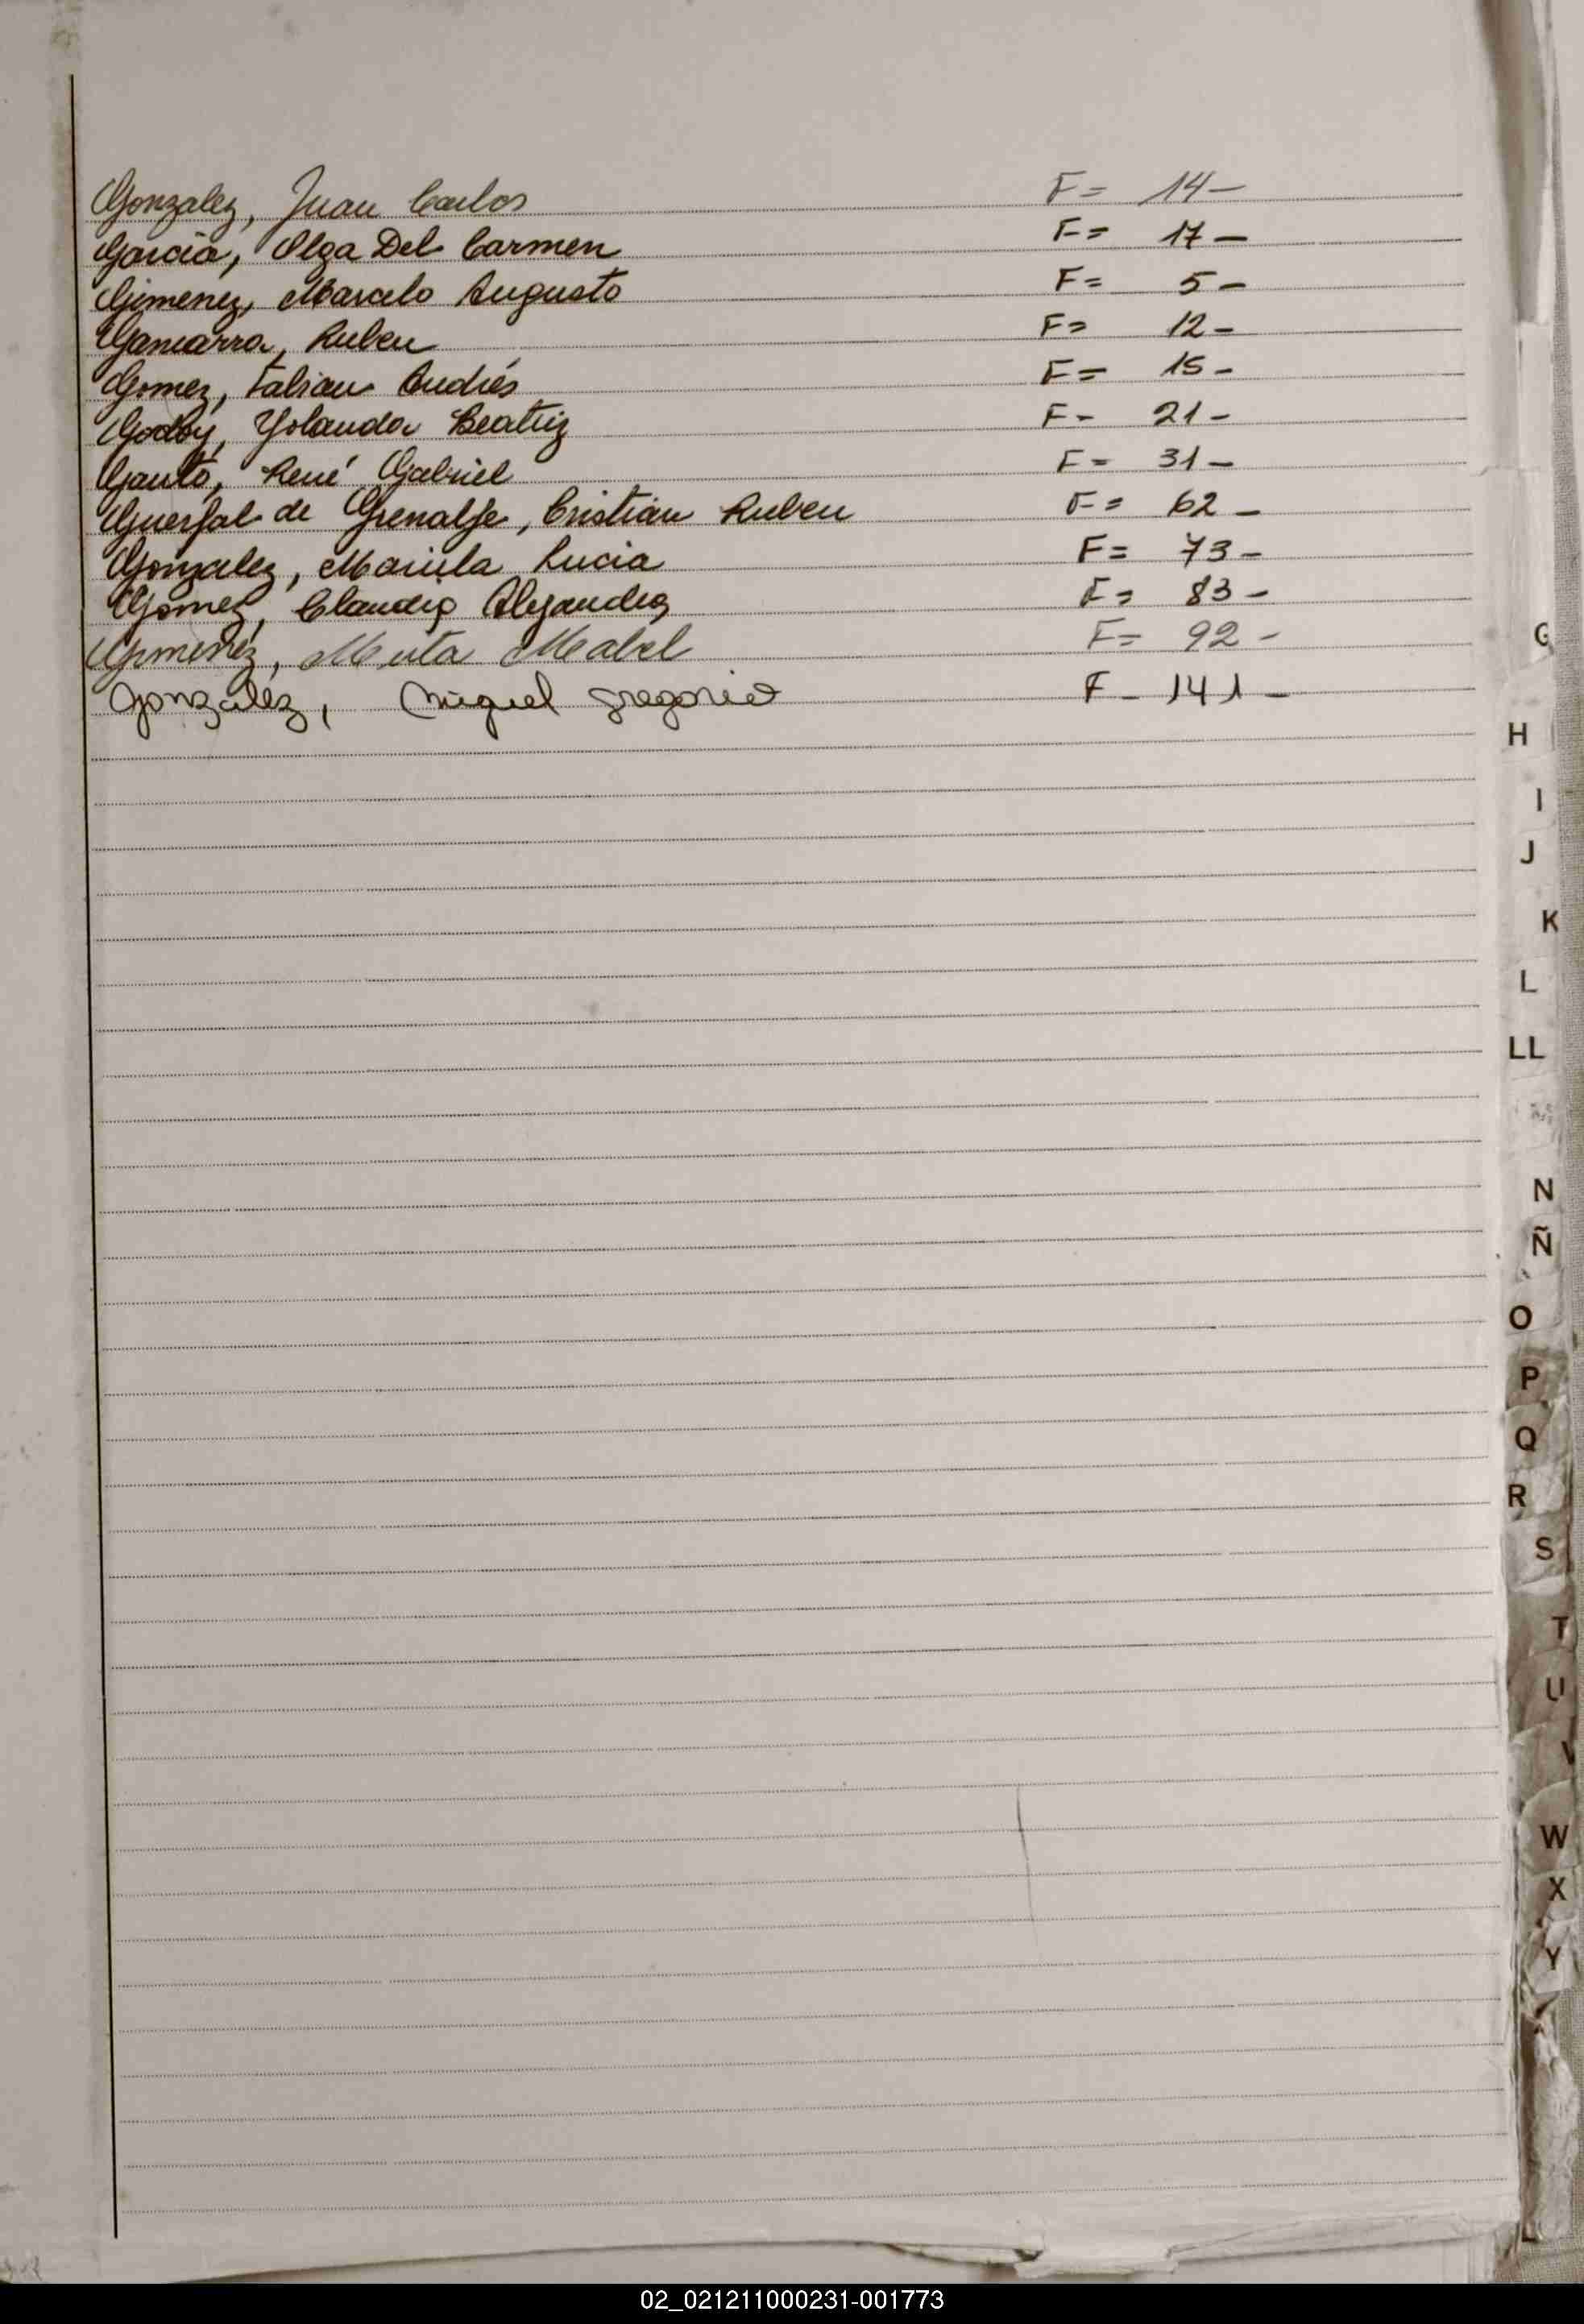 Gonzalez, Juan Carlos F= 14-
Garcia, Olga Del Carmen F= 17-
Gimenez, Marcelo Augusto F= 5-
Gamarra, Ruben F= 12-
Gomez, Fabian Andrés F= 15-
Godoy, Yolanda Beatriz F- 21-
Gauto, René Gabriel F= 31-
de Cristian Ruben F= 62-
Gonzalez, Mariela Lucia F= 73-
Gomez, Claudia Alejandra F= 83-
Gimenez, Mirta Mabel F= 92-
Gonzalez, Miguel Gregorio F- 141-
G
H
I
J
K
L
LL
N
Ñ
O
P
Q
R
S
T
U
V
W
X
Y
02_021211000231-001773